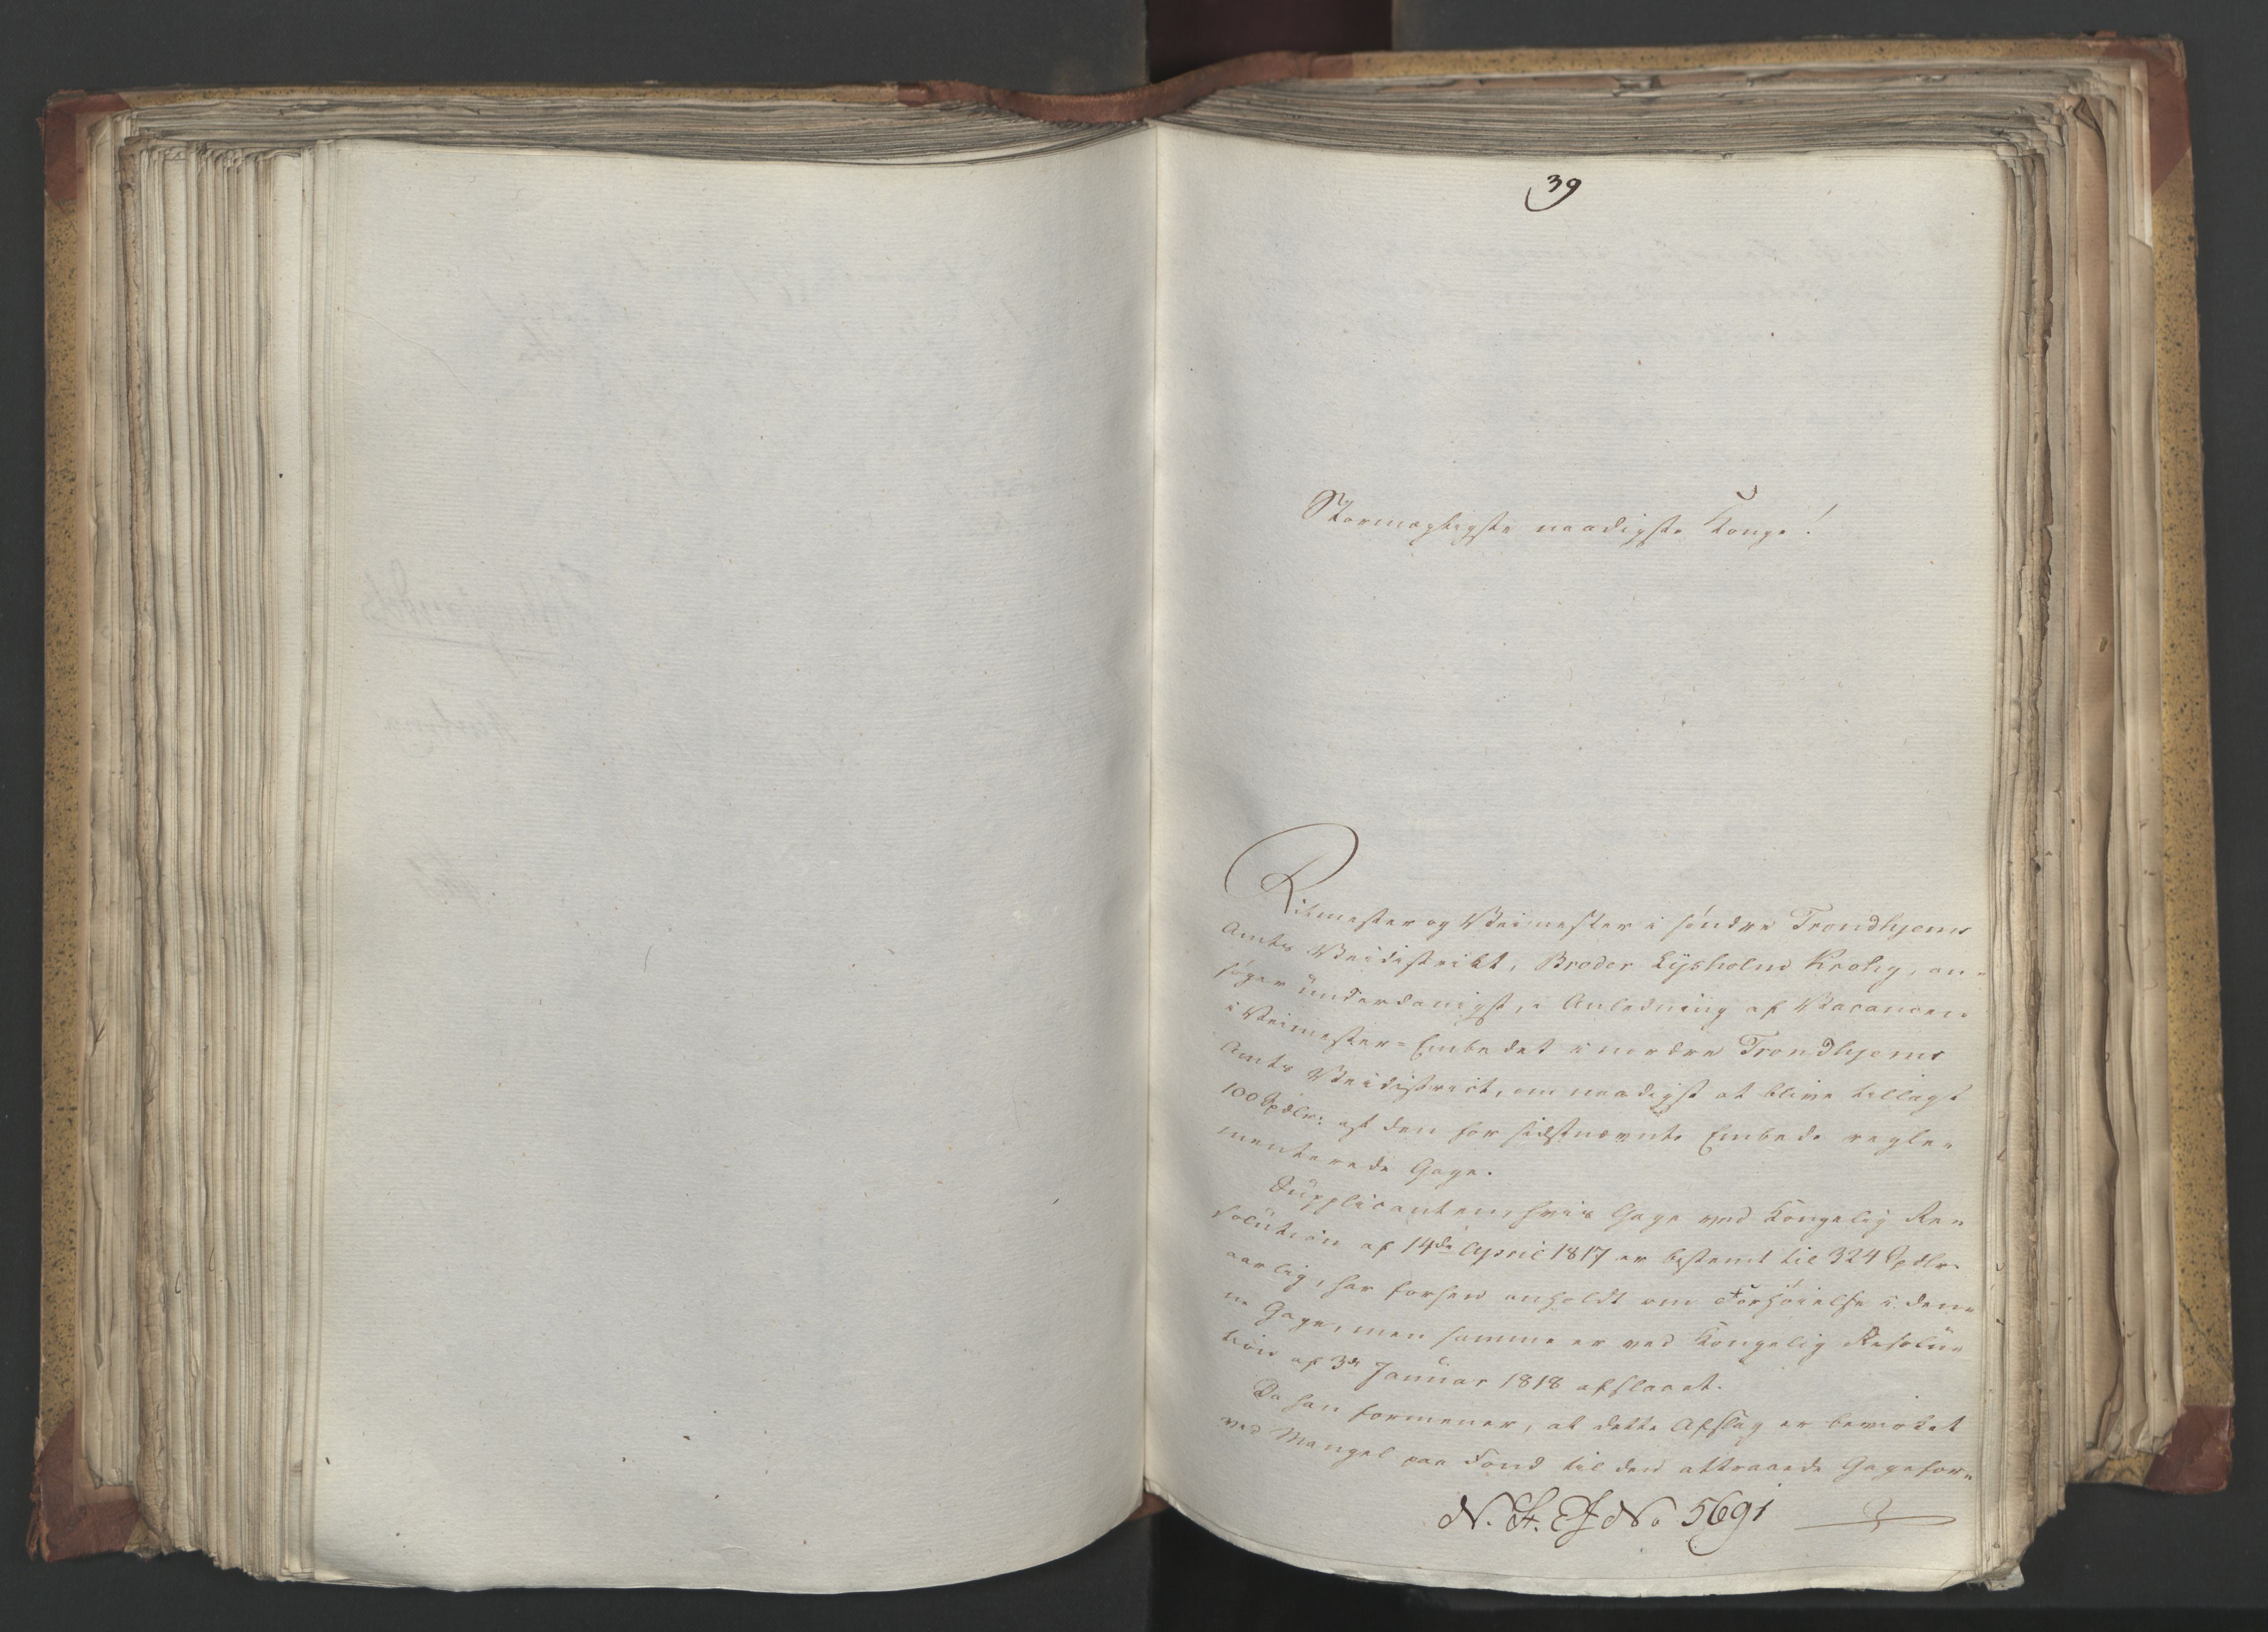 39
Stormægtigste naadigste Konge!
Ritmester og Veimester i søndre Trondhjems
Amts Veidistrikt, Broder Lysholm Krohg, an-
søger underdanigst, i Anledning af Vacancen
i Veimester-Embedet i nordre Trondhjems
Amts Veidistrict, om naadigst at blive tillagt
100 Spdlr: af den for sidstnævnte Embede regle-
menterede Gage.
Supplicanten, hvis Gage ved Kongelig Re-
solution af 14de April 1817 er bestemt til 324 Spdlr.
aarlig, har forhen anholdt om Forhøielse i den-
ne Gage, men samme er ved Kongelig Resolu-
tion af 3de Januar 1818 afslaaet.
Da han formener, at dette Afslag er bevirket
ved Mangel paa Fond til den attraaede Gagefor-
N. F. E J No 5691